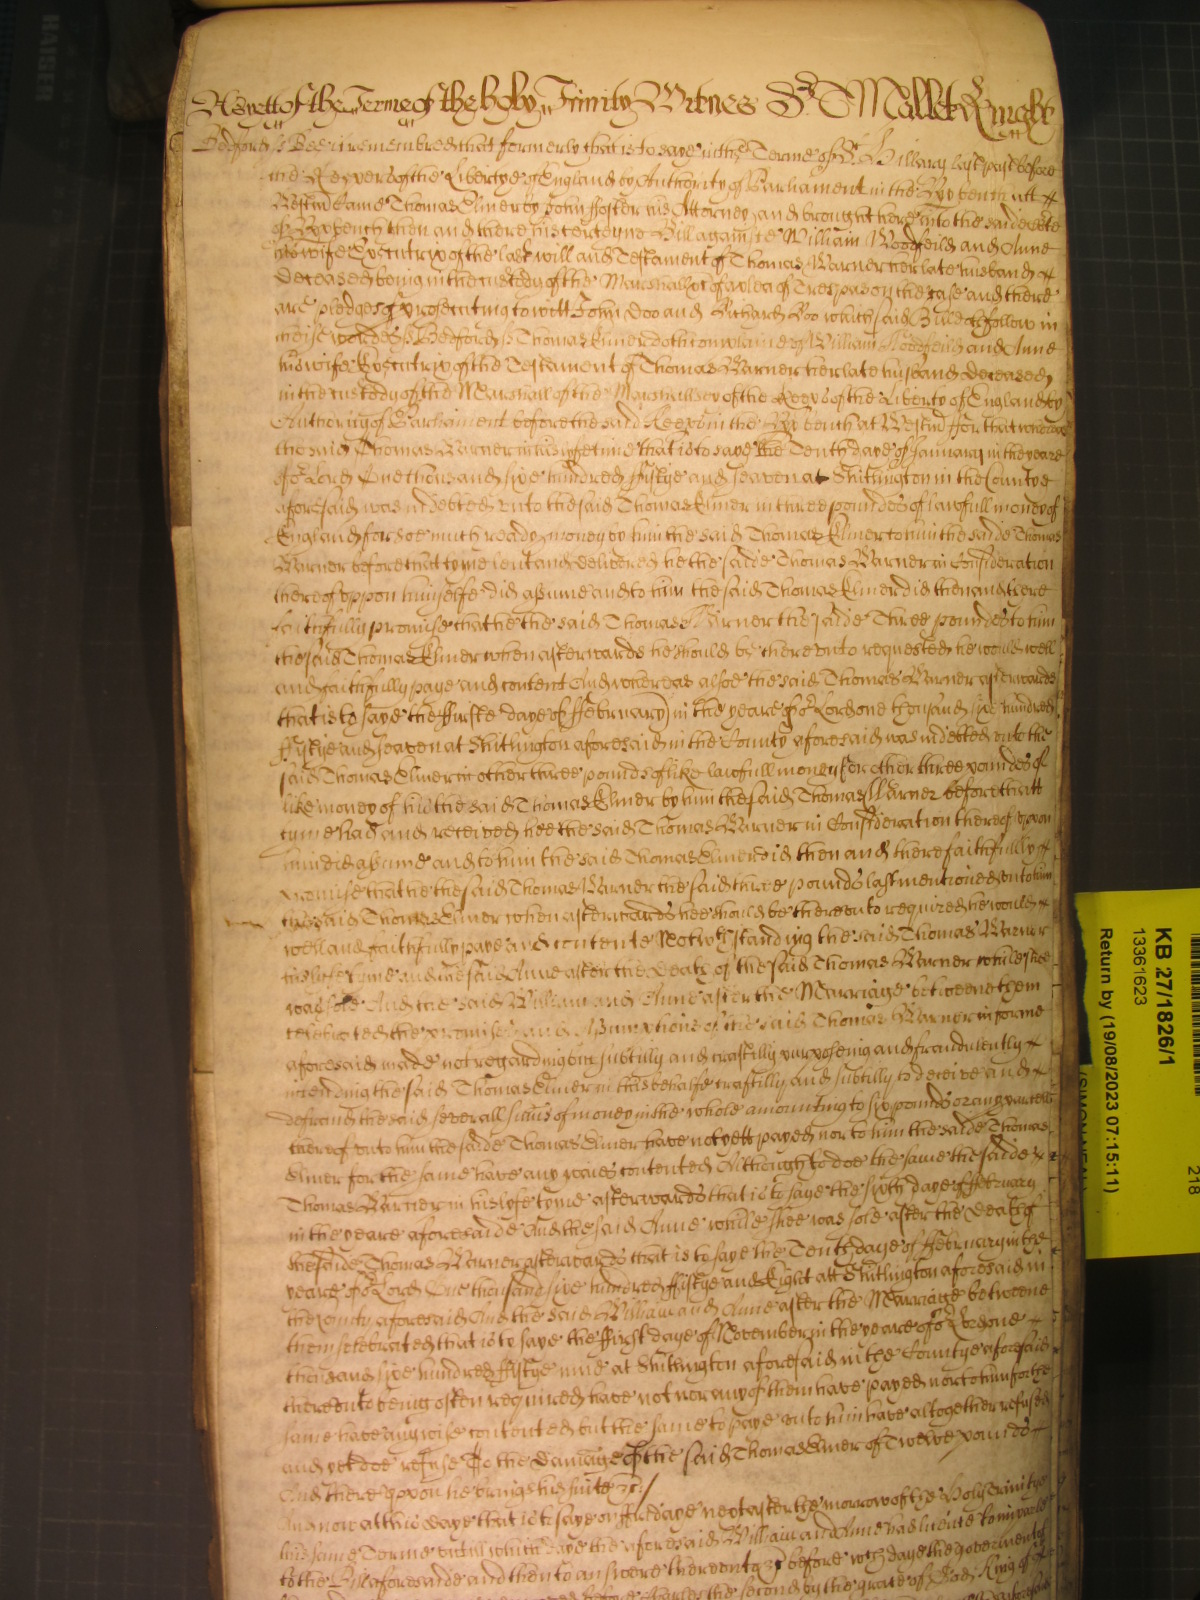 As yett of the Terme of the holy Trinity Witnes Sr T Mallet Knight
Bedford ss Bee it remembred that formerly that is to saye in the Terme of St Hillary last past before
the Keepers of the Libertye of England by Authority of Parliament in the Upp bench att
Westm̄ Came Thomas Elmer by John ffoster his Attorney and brought here into the said Courte
of Upp bench then and there his certeyne Bill against William Woodfeild and Anne
his wife Executrix of the last will and Testament of Thomas Warner her late husband
deceased being in the custody of the Marshall &c of a plea of Trespas on the case and there
are pledges of prosecuting to witt John Doo and Richard Roo which said Bill follow in
theise wordes ss Bedford ss Thomas Elmer doth complaine of William Woodfeild and Anne
his wife Executrix of the Testament of Thomas Warner her late husband deceased
in the custody of the Marshall of the Marshallsey of the Keeps of the Liberty of England by
Authority of Parliament before the said Keeps in the Upp bench at Westm̄ ffor that whereas
the said Thomas Warner in his life time that is to saye the Tenth daye of January in the yeare
of or Lord One thousand six hundred ffiftye and seaven at Shitlington in the Countye
aforesaid was indebted unto the said Thomas Elmer in three poundes of lawfull money of
England for soe much ready money by him the said Thomas Elmer to him the saide Thomas
Warner before that tyme lent and delivered he the saide Thomas Warner in Consideration
thereof uppon himselfe did assume and to him the said Thomas Elmer did then and there
faithfully promise that he the said Thomas Warner the saide Three poundes to him
the said Thomas Elmer when afterwards he should be thereunto requested he would well
and faithfully paye and content And whereas alsoe the said Thomas Warner afterwarde
that is to saye the ffirste daye of ffebruary in the yeare of or Lord one thousand six hundred
ffiftye and seaven at Shitlington aforesaid in the County aforesaid was indebted unto the
said Thomas Elmer in other three pounds of like lawfull money for other three poundes of
like money of his the said Thomas Elmer by him the said Thomas Warner before that
tyme had and received hee the said Thomas Warner in Consideration thereof upon
him did assume and to him the said Thomas Elmer did then and there faithfully
promise that he the said Thomas Warner the said three pounds last mentioned unto him
the said Thomas Elmer when afterwards hee should be thereunto required he would
well and faithfully paye and contente Notwthstanding the said Thomas Warner
in his life tyme and the said Anne after the Death of the said Thomas Warner while shee
was sole And the said William and Anne after the Marriage betweene them
celebrated the promises and Assumptions of the said Thomas Warner in forme
aforesaid made not regarding but subtilly and craftilly purposeing and fraudulently
intending the said Thomas Elmer in this behalfe craftilly and subtilly to deceive and
defraud the said severall sums of money in the whole amounting to six pounds or any parte
thereof unto him the saide Thomas Elmer have not yett payed nor to him the saide Thomas
Elmer for the same have any waies contented Although to doe the same the saide
Thomas Warner in his lyfe tyme afterwards that is to saye the sixth daye of ffebruary
in the yeare aforesaide And the said Anne while shee was sole after the Death of
the saide Thomas Warner afterwards that is to saye the Tenth daye of ffebruary in the
yeare of or Lord One thousand six hundred ffiftye and Eight att Shitlington aforesaid in
the County aforesaid And the said William and Anne after the Marriage betweene
them celebrated that is to saye the ffirst daye of November in the yeare of or Lord one
thousand six hundred ffiftye nine at Shitlington aforesaid in the Countye aforesaid
thereunto being often required have not nor any of them have payed nor to him for the
same have anywise contented but the same to paye unto him have altogether refused
and yet doe refuse To the damage of the said Thomas Elmer of Twelve pounds
And thereupon he brings his suite &c
And now att this daye that is to saye on ffridaye next after the morrow of the Holy Trinitye
this same Terme untill which daye the aforesaid William and Anne had licence to imparle
to the Bill aforesaide and then to answere thereunto &c before wch daye the goverment of
before Charles the second by the grace of God King of
KB 27/1826/1
13361623
Return by (19/08/2023 07:15:11)
218
KAISER